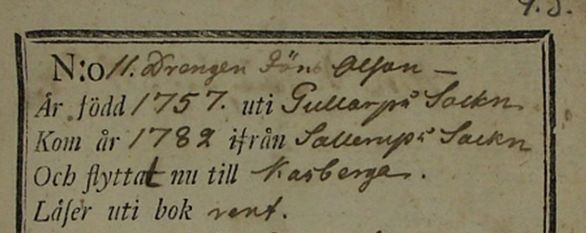 9. S.
N:o 11. Drengen Jöns Olson —
Är född 1757. uti Gullarps Sockn
Kom år 1782 ifrån Sallerups Sockn
Och flyttat nu till Kasberga.
Läser uti bok rent.